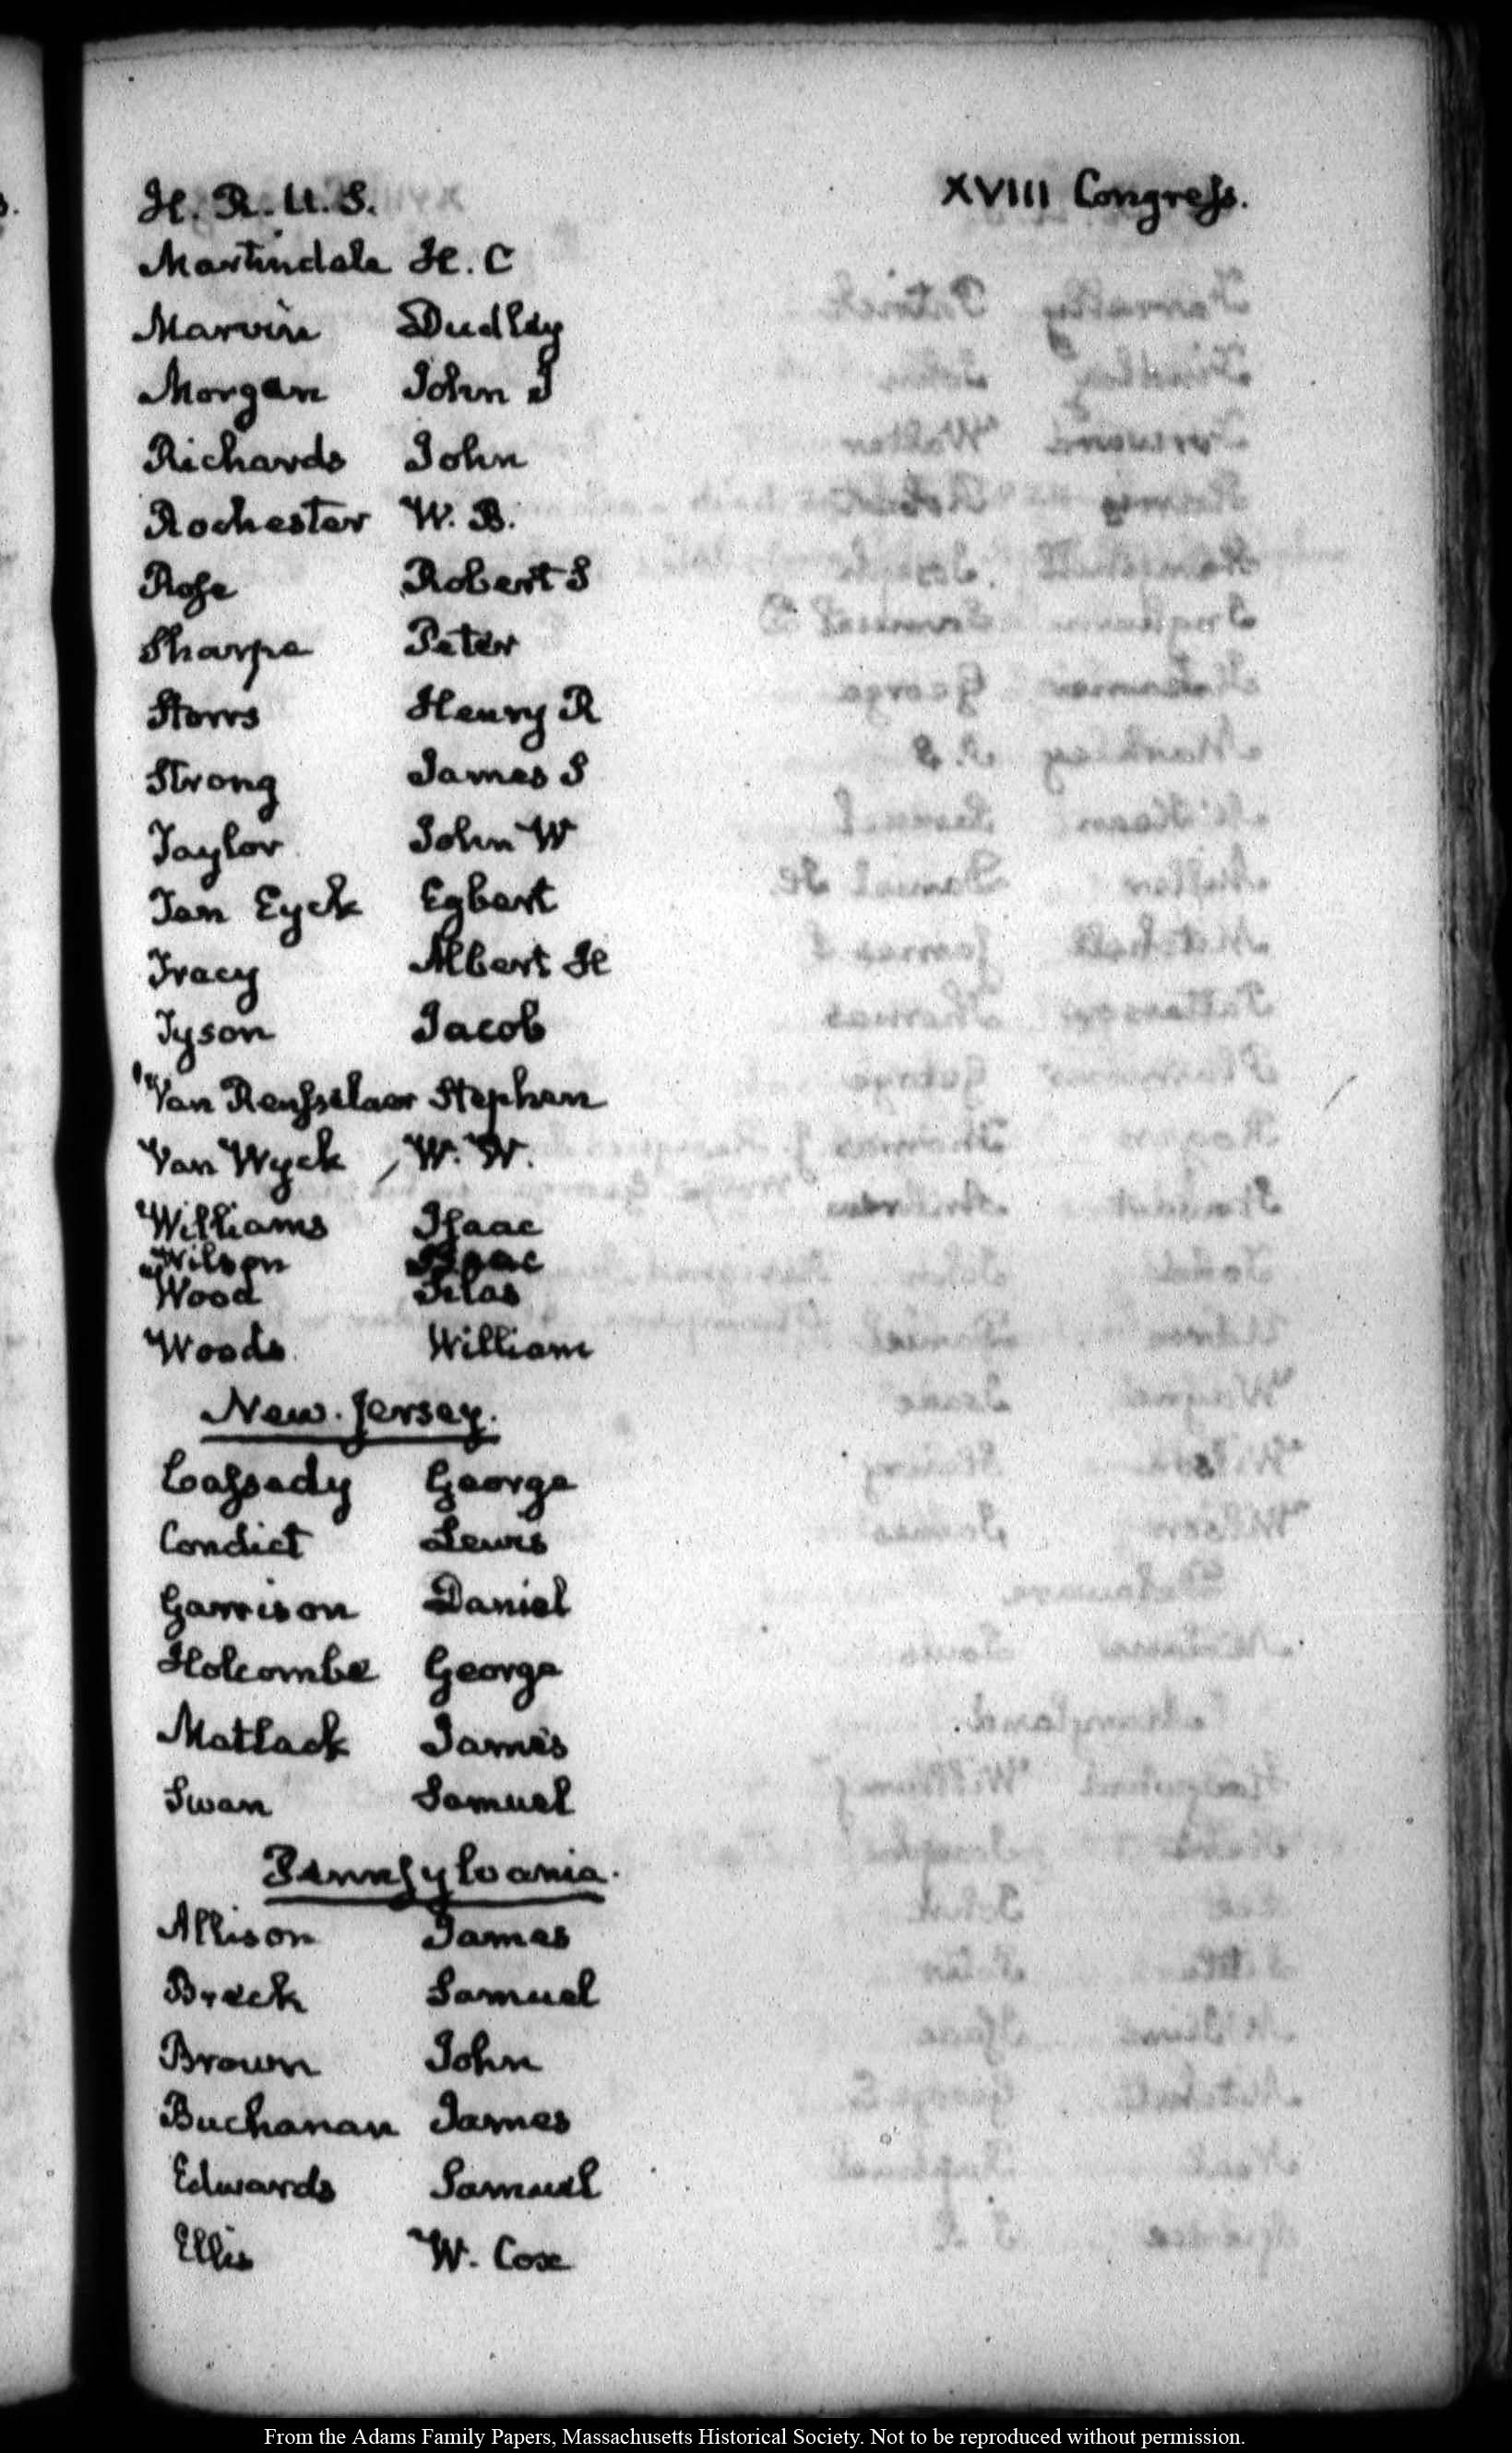 H. R. U. S. XVIII Congress.
Martindale H. C
Marvin Dudley
Morgan John J
Richards John
Rochester W. B.
Rose Robert S
Sharpe Peter
Storrs Henry R
Strong James S
Taylor John W
Ten Eyck Egbert
Tracy Albert H
Tyson Jacob
Van Rensselaer Stephen
Van Wyck W. W.
Williams Isaac
Wilson Isaac
Wood Silas
Woods William
New-Jersey.
Cassedy George
Condict Lewis
Garrison Daniel
Holcombe George
Matlack James
Swan Samuel
Pennsylvania.
Allison James
Breck Samuel
Brown John
Buchanan James
Edwards Samuel
Ellis W. Cox
From the Adams Family Papers, Massachusetts Historical Society. Not to be reproduced without permission.